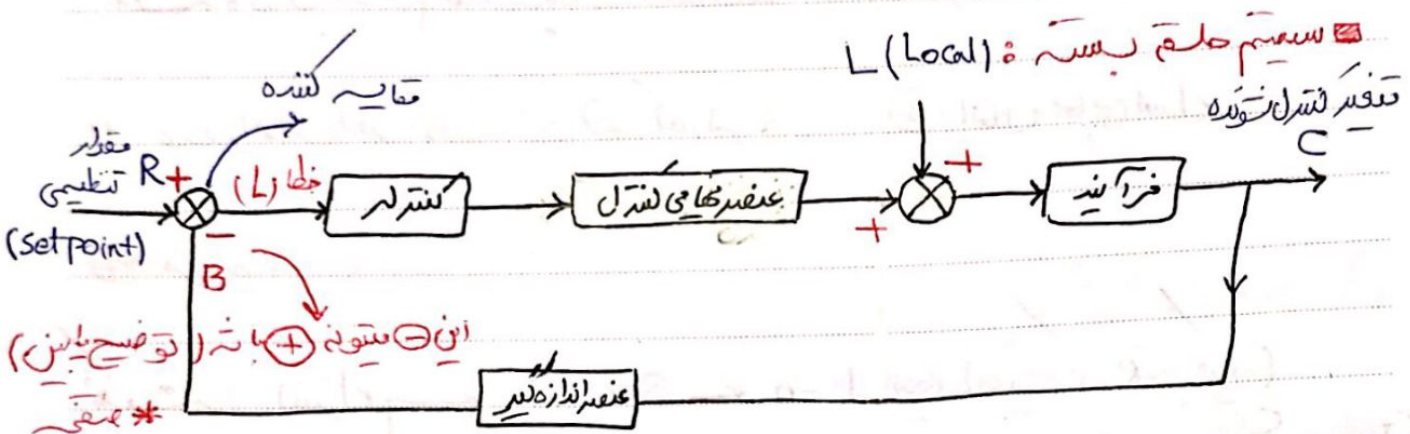 سیستم حلقه بسته : L (Local)
مقایسه کننده
متغیر کنترل شونده
C
مقدار
تنظیمی
R +
(setpoint)
خطا (L)
کنترلر
عنصر نهایی کنترل
+
+
فرآیند
−
B
این ⊖ میتونه ⊕ باشه (توضیح پایین)
* منفی
عنصر اندازه گیر